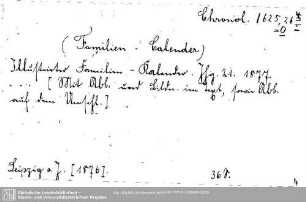 Chronol. 1625, 26
(Familien-Calender)
Illustrirter Familien-Kalender. Jhg. 21. 1877.
... [Mit Abb. und Lith. im Text, sowie Abb.
auf dem Umschl.]
Leipzig o. J. [1876].
368.
4
Sächsische Landesbibliothek -
Staats- und Universitätsbibliothek Dresden